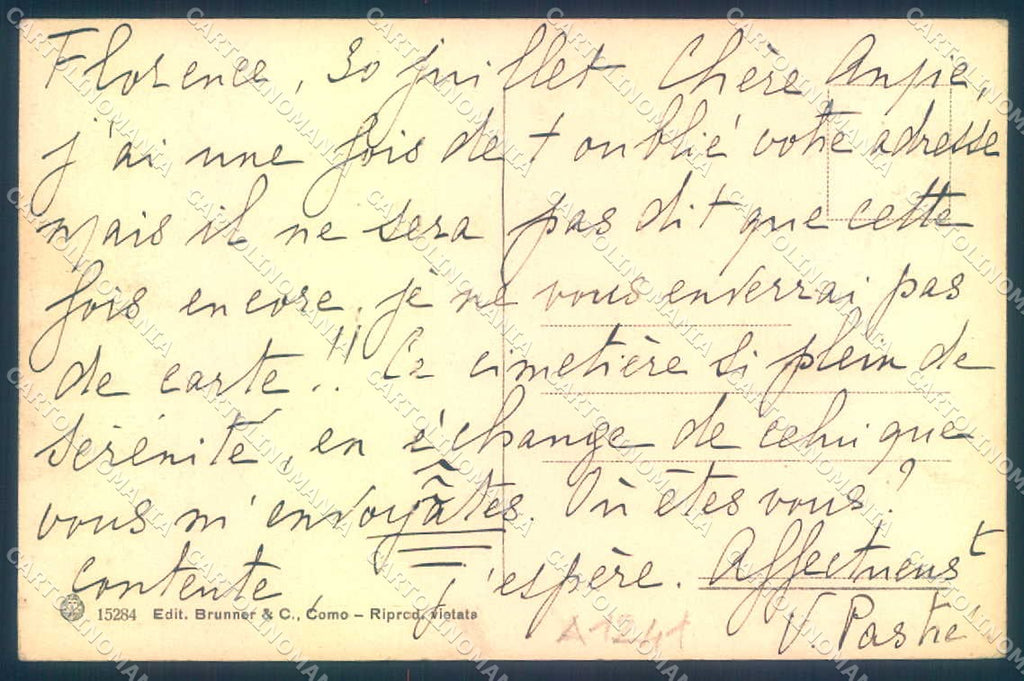 Florence, 30 juillet Chère Anpie,
j'ai une fois de + oublié votre adresse
mais il ne sera pas dit que cette
fois encore je ne vous enverrai pas
de carte!! Ce cimetière si plein de
sérénité, en échange de celui que
vous m'envoyâtes. Où êtes vous?
Contente, j'espère. Affectueus^t
V. Pastre
15284 Edit. Brunner & C., Como – Riprod. vietata
A1241
CARTOLINOMANIA